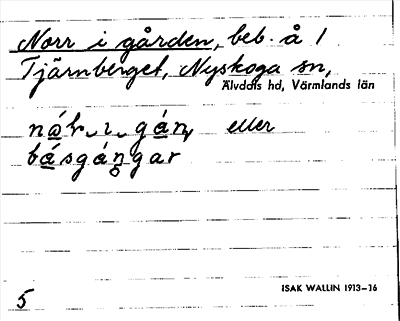 Norr i gården, beb. å 1
Tjärnberget, Nyskoga sn,
Älvdals hd, Värmlands län
eller
båsgáŋgar
5
ISAK WALLIN 1913–16